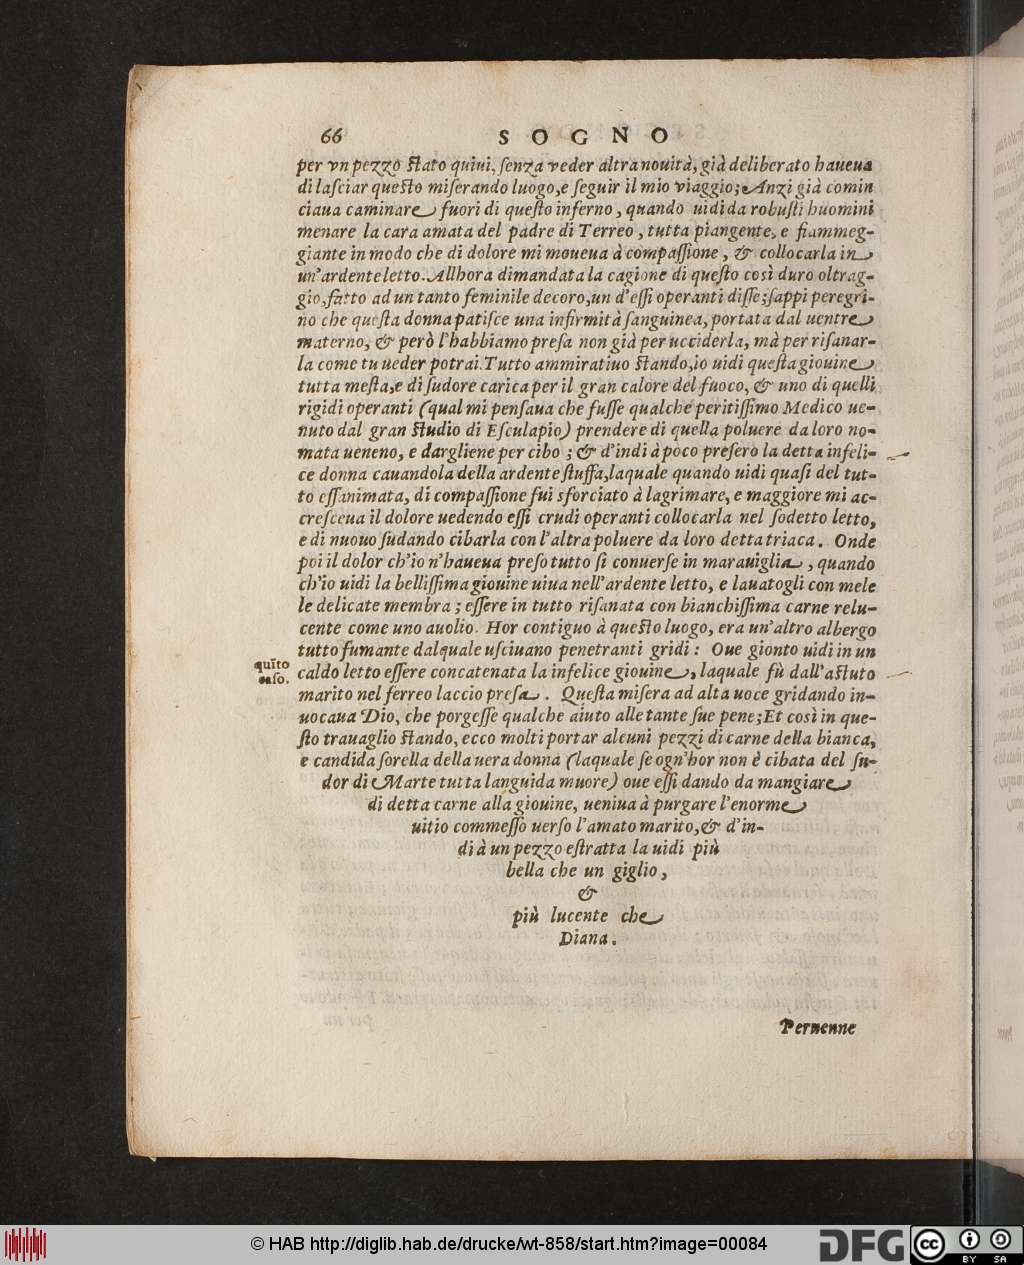 66 SOGNO
per vn pezzo ſtato quiui, ſenza veder altra nouità, già deliberato haueua
di laſciar queſto miſerando luogo, e ſeguir il mio viaggio; Anzi già comin
ciaua caminare fuori di queſto inferno, quando uidi da robuſti huomini
menare la cara amata del padre di Terreo, tutta piangente, e fiammeg-
giante in modo che di dolore mi moueua à compaſſione, & collocarla in
un'ardente letto. Allhora dimandata la cagione di queſto così duro oltrag-
gio, fatto ad un tanto feminile decoro, un d'eſſi operanti diſſe; ſappi peregri-
no che queſta donna patiſce una infirmità ſanguinea, portata dal uentre
materno, & però l'habbiamo preſa non già per ucciderla, mà per riſanar-
la come tu ueder potrai. Tutto ammiratiuo ſtando, io uidi queſta giouine
tutta meſta, e di ſudore carica per il gran calore del fuoco, & uno di quelli
rigidi operanti (qual mi penſaua che fuſſe qualche peritiſſimo Medico ue-
nuto dal gran ſtudio di Eſculapio) prendere di quella poluere da loro no-
mata ueneno, e dargliene per cibo; & d'indi à poco preſero la detta infeli-
ce donna cauandola della ardente ſtuffa, laquale quando uidi quaſi del tut-
to eſſanimata, di compaſſione fui sforciato à lagrimare, e maggiore mi ac-
creſceua il dolore uedendo eſſi crudi operanti collocarla nel ſodetto letto,
e di nuouo ſudando cibarla con l'altra poluere da loro detta triaca. Onde
poi il dolor ch'io n'haueua preſo tutto ſi conuerſe in marauiglia, quando
ch'io uidi la belliſſima giouine uiua nell'ardente letto, e lauatogli con mele
le delicate membra; eſſere in tutto riſanata con bianchiſſima carne relu-
cente come uno auolio. Hor contiguo à queſto luogo, era un'altro albergo
tutto fumante dalquale uſciuano penetranti gridi: Oue gionto uidi in un
quĩto
caſo.
caldo letto eſſere concatenata la infelice giouine, laquale fù dall'aſtuto
marito nel ferreo laccio preſa. Queſta miſera ad alta uoce gridando in-
uocaua Dio, che porgeſſe qualche aiuto alle tante ſue pene; Et così in que-
ſto trauaglio ſtando, ecco molti portar alcuni pezzi di carne della bianca,
e candida ſorella della uera donna (laquale ſe ogn'hor non è cibata del ſu-
dor di Marte tutta languida muore) oue eſſi dando da mangiare
di detta carne alla giouine, ueniua à purgare l'enorme
uitio commeſſo uerſo l'amato marito, & d'in-
di à un pezzo eſtratta la uidi più
bella che un giglio,
&
più lucente che
Diana.
Peruenne
© HAB http://diglib.hab.de/drucke/wt-858/start.htm?image=00084
DFG
cc BY SA